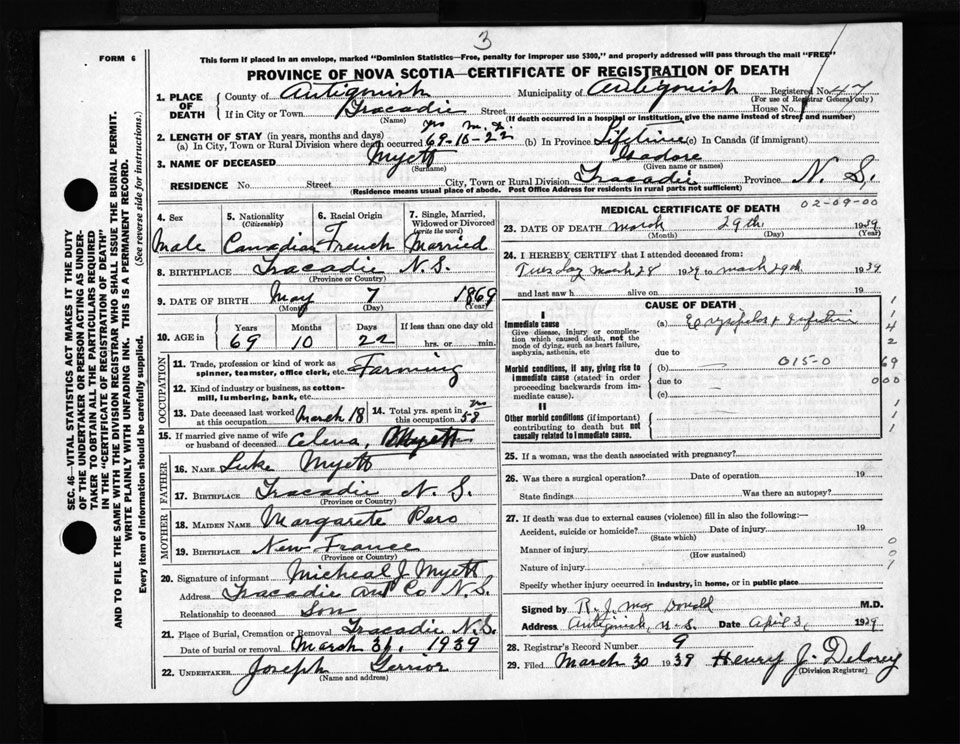 3
FORM 6
This form if placed in an envelope, marked "Dominion Statistics—Free, penalty for improper use $300," and properly addressed will pass through the mail "FREE"
PROVINCE OF NOVA SCOTIA—CERTIFICATE OF REGISTRATION OF DEATH
1. PLACE OF DEATH
County of Antigonish Municipality of Antigonish Registered No. 47
(For use of Registrar General only)
If in City or Town Tracadie Street House No.
(Name) (If death occurred in a hospital or institution, give the name instead of street and number)
2. LENGTH OF STAY (in years, months and days) yrs m. d.
(a) In City, Town or Rural Division where death occurred 69-10-22 (b) In Province Lifetime (c) In Canada (if immigrant)
3. NAME OF DECEASED Myett Isadore
(Surname) (Given name or names)
RESIDENCE No. Street City, Town or Rural Division Tracadie Province N. S.
(Residence means usual place of abode. Post Office Address for residents in rural parts not sufficient)
4. Sex Male
5. Nationality (Citizenship) Canadian
6. Racial Origin French
7. Single, Married, Widowed or Divorced (write the word) Married
8. BIRTHPLACE Tracadie N.S.
(Province or Country)
9. DATE OF BIRTH May 7 1869
(Month) (Day) (Year)
10. AGE IN Years 69 Months 10 Days 22 If less than one day old
hrs. or min.
OCCUPATION
11. Trade, profession or kind of work as spinner, teamster, office clerk, etc. Farming
12. Kind of industry or business, as cotton-mill, lumbering, bank, etc.
13. Date deceased last worked at this occupation March 18
14. Total yrs. spent in this occupation 58 yrs
15. If married give name of wife or husband of deceased Myett
FATHER
16. NAME Luke Myett
17. BIRTHPLACE Tracadie N. S.
(Province or Country)
MOTHER
18. MAIDEN NAME Margarete Pero
19. BIRTHPLACE New France
(Province or Country)
20. Signature of informant Micheal J. Myett
Address Tracadie Ant Co N.S.
Relationship to deceased Son
21. Place of Burial, Cremation or Removal Tracadie N.S.
Date of burial or removal March 31, 1939
22. UNDERTAKER Joseph Gerrior
(Name and address)
MEDICAL CERTIFICATE OF DEATH
02-09-00
23. DATE OF DEATH March 29th 1939
(Month) (Day) (Year)
24. I HEREBY CERTIFY that I attended deceased from:
Tuesday March 28 1939 to March 29th 1939
and last saw h alive on 19
CAUSE OF DEATH
I
Immediate cause
Give disease, injury or complication which caused death, not the mode of dying, such as heart failure, asphyxia, asthenia, etc
(a) Erysipelas + Infection
due to
Morbid conditions, if any, giving rise to immediate cause (stated in order proceeding backwards from immediate cause).
(b) 015-0
due to
(c)
II
Other morbid conditions (if important) contributing to death but not causally related to immediate cause.
1
1
4
2
69
000
1
1
1
25. If a woman, was the death associated with pregnancy?
26. Was there a surgical operation? Date of operation 19
State findings Was there an autopsy?
27. If death was due to external causes (violence) fill in also the following:—
Accident, suicide or homicide? Date of injury 19
(State which)
Manner of injury
(How sustained)
Nature of injury
Specify whether injury occurred in industry, in home, or in public place
0
0
1
Signed by R. J. Mac Donald M.D.
Address Antigonish, N.S. Date April 3, 1939
28. Registrar's Record Number 9
29. Filed March 30 1939 Henry J. Delorey
(Division Registrar)
SEC. 46—VITAL STATISTICS ACT MAKES IT THE DUTY
OF THE UNDERTAKER OR PERSON ACTING AS UNDERTAKER TO OBTAIN ALL THE PARTICULARS REQUIRED
IN THE "CERTIFICATE OF REGISTRATION OF DEATH"
AND TO FILE THE SAME WITH THE DIVISION REGISTRAR WHO SHALL ISSUE THE BURIAL PERMIT.
WRITE PLAINLY WITH UNFADING INK. THIS IS A PERMANENT RECORD.
Every item of information should be carefully supplied. (See reverse side for instructions.)